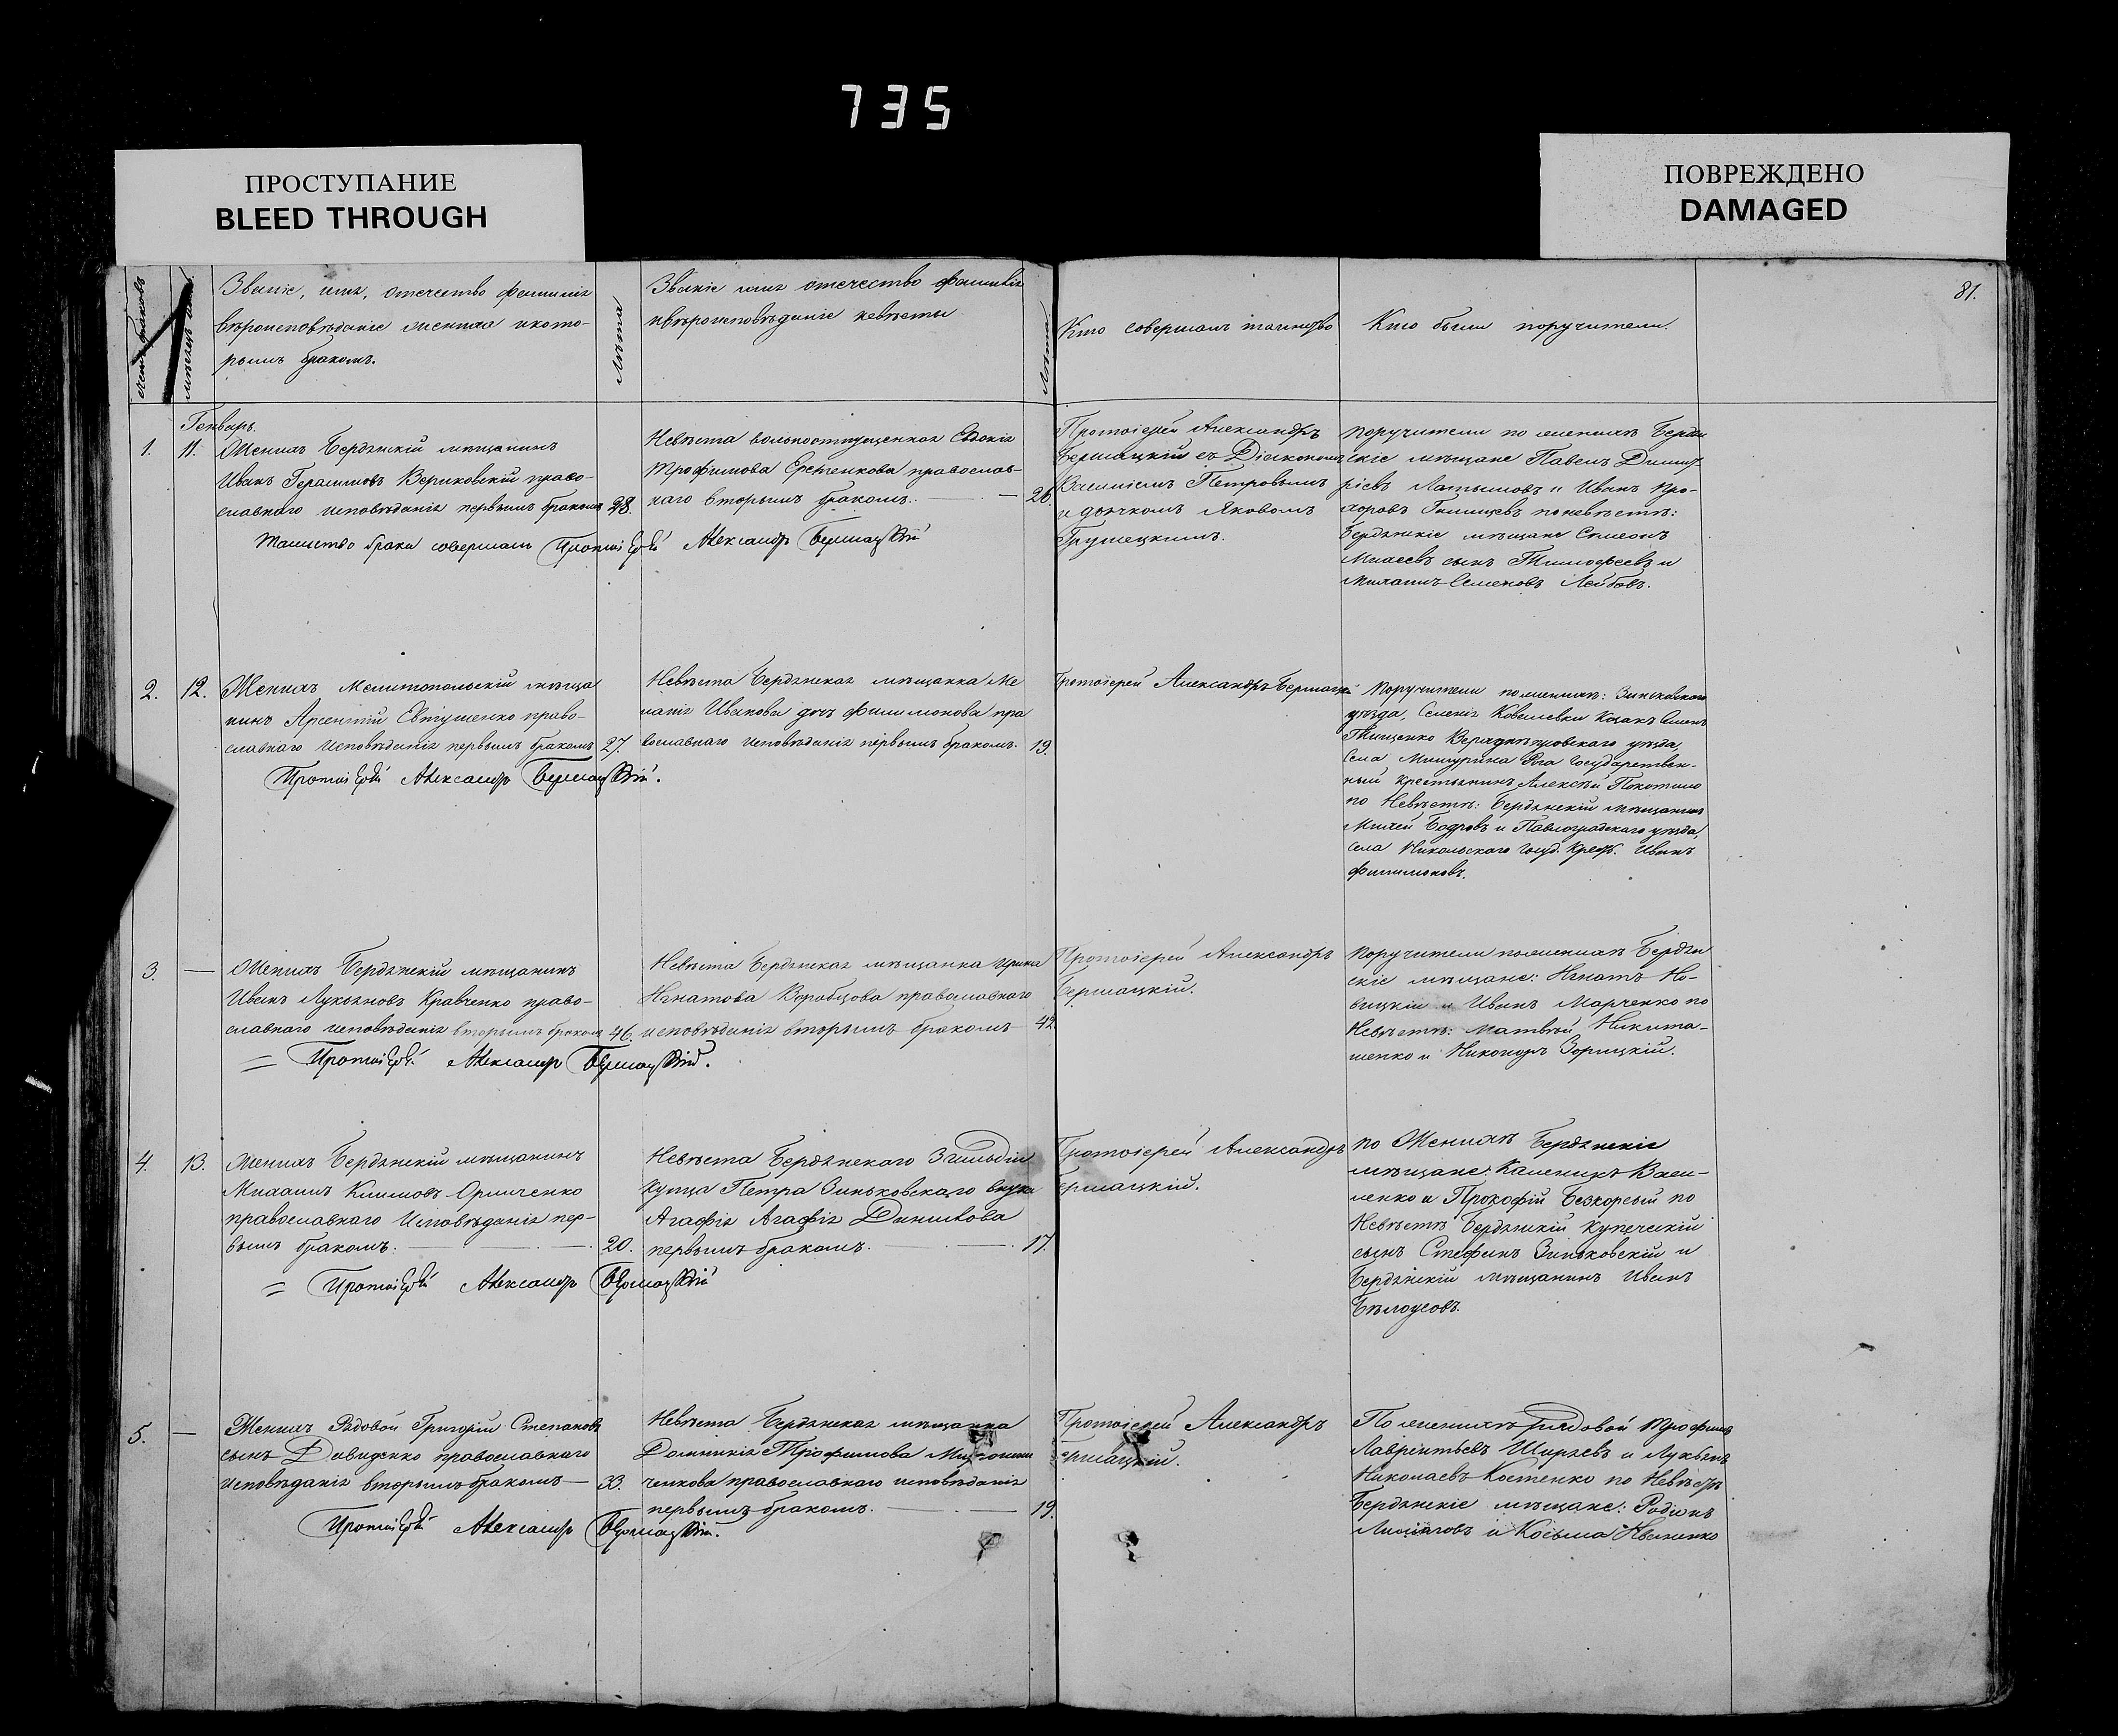 735
ПРОСТУПАНИЕ
BLEED THROUGH
ПОВРЕЖДЕНО
DAMAGED
81.
Званіе, имя, отечество фамилія
вѣроисповѣданіе жениха и кото-
рымъ бракомъ.
Лѣта
Званіе имя отечество фамилія
и вѣроисповѣданіе невѣсты
Лѣта
Кто совершалъ таинство
Кто были поручители.
Генварь.
1. 11.
Женихъ Бердянскій мѣщанинъ
Иванъ Герасимовъ Вериковскій право-
славнаго исповѣданія первымъ бракомъ 28.
Невѣста вольноотпущенная Евдокія
Трофимова православ-
наго вторымъ бракомъ. 26
Таинство брака совершалъ Протоіерей Александръ Бермацкій
Протоіерей Александръ
Бермацкій съ Діякономъ
Василіемъ Петровымъ
и дьячкомъ Яковомъ
Грушецкимъ.
поручители по женихѣ Бердян
скіе мѣщане Павелъ Димит
ріевъ Латышовъ и Иванъ Про-
хоровъ по невѣстѣ:
Бердянскіе мѣщане Симеонъ
сынъ Тимофеевъ и
Михаилъ Семеновъ Лейбовъ.
2. 12.
Женихъ Мелитопольскій мѣща
нинъ Арсентій Евтушенко право-
славнаго исповѣданія первымъ бракомъ 27.
Протоіерей Александръ Бермацкій.
Невѣста Бердянская мѣщанка Ме
ланія Иванова дочь Филимонова пра
вославнаго исповѣданія первымъ бракомъ. 19.
Протоіерей Александръ Бермацкій
Поручители по женихѣ: Зинковскаго
уѣзда, Селенія Ковалевки Козакъ
Тищенко Верхднѣпровскаго уѣзда,
Села Мишурина Рога Государствен-
ный крестьянинъ Алексѣй Покотило
по Невѣстѣ: Бердянскій мѣщанинъ
Михей Бодровъ и Павлоградскаго уѣзда,
села Никольскаго Госуд. Крест. Иванъ
Филимоновъ.
3. —
Женихъ Бердянскій мѣщанинъ
Иванъ Лукьяновъ Кравченко право-
славнаго исповѣданія вторымъ бракомъ 46.
= Протоіерей Александръ Бермацкій.
Невѣста Бердянская мѣщанка Ирина
Игнатова Воробцова православнаго
исповѣданія вторымъ бракомъ 42
Протоіерей Александръ
Бермацкій.
поручители по женихѣ Бердян
скіе мѣщане: Игнатъ Но-
вицкій и Иванъ Марченко по
Невѣстѣ: Матвѣй Никита-
шенко и Никаноръ Зорицкій.
4. 13.
Женихъ Бердянскій мѣщанинъ
Михаилъ Климовъ Орличенко
православнаго Исповѣданія пер-
вымъ бракомъ. 20.
= Протоіерей Александръ Бермацкій
Невѣста Бердянскаго 3 гильдіи
купца Петра Зиньковскаго внука
Агафія Агафія Данилова
первымъ бракомъ. 17.
Протоіерей Александръ
Бермацкій.
по Женихѣ Бердянскіе
мѣщане: Каленикъ Васи-
ленко и Прокофій Безкорсый по
Невѣстѣ Бердянскій Купеческій
сынъ Стефанъ Зиньковскій и
Бердянскій мѣщанинъ Иванъ
Бѣлоусовъ.
5. —
Женихъ Рядовой Григорій Степановъ
сынъ Давиденко православнаго
исповѣданія вторымъ бракомъ 33.
Протоіерей Александръ Бермацкій.
Невѣста Бердянская мѣщанка
Домникія Трофимова
ченкова православнаго исповѣданія
первымъ бракомъ. 19.
Протоіерей Александръ
Бермацкій.
По женихѣ Рядовой Трофимъ
Лаврентьевъ Ширяевъ и Лукьянъ
Николаевъ Костенко по Невѣстѣ
Бердянскіе мѣщане: Родіонъ
и Косьма Иваненко